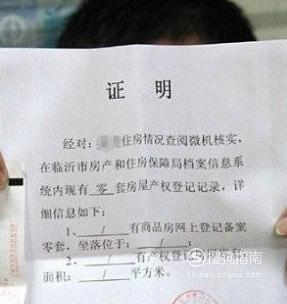 证 明
经对：住房情况查阅微机核实，
在临沂市房产和住房保障局档案信息系
统内现有 零 套房屋产权登记记录，详
细信息如下：
1、 / 有商品房网上登记备案
零套，坐落位于： / ；
2、 / 有产权登记
面积： / 平方米。
搜狗指南
zhinan.sogou.com